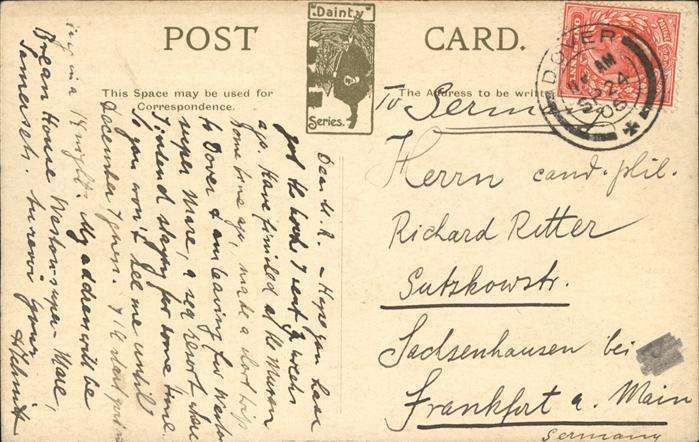 POST CARD.
"Dainty"
Series.
This Space may be used for
Correspondence.
The Address to be writt
DOVER
AM
24
SP 06
Dear M. R. – Hope you have
got the books I sent 2 weeks
ago. Have finished at the Museum
some time ago, made a short trip
to Dover & am leaving for Weston
super Mare, a sea resort where
I intend staying for some time.
So you won't see me until
December 1 guess. I'll start
in a fortnight. My address will be
Brean House Weston-super-Mare,
Somerset. Au revoir yours
To Germ
Herrn cand. phil.
Richard Ritter
Sutzkowstr.
Sachsenhausen bei
Frankfort a. Main
Germany